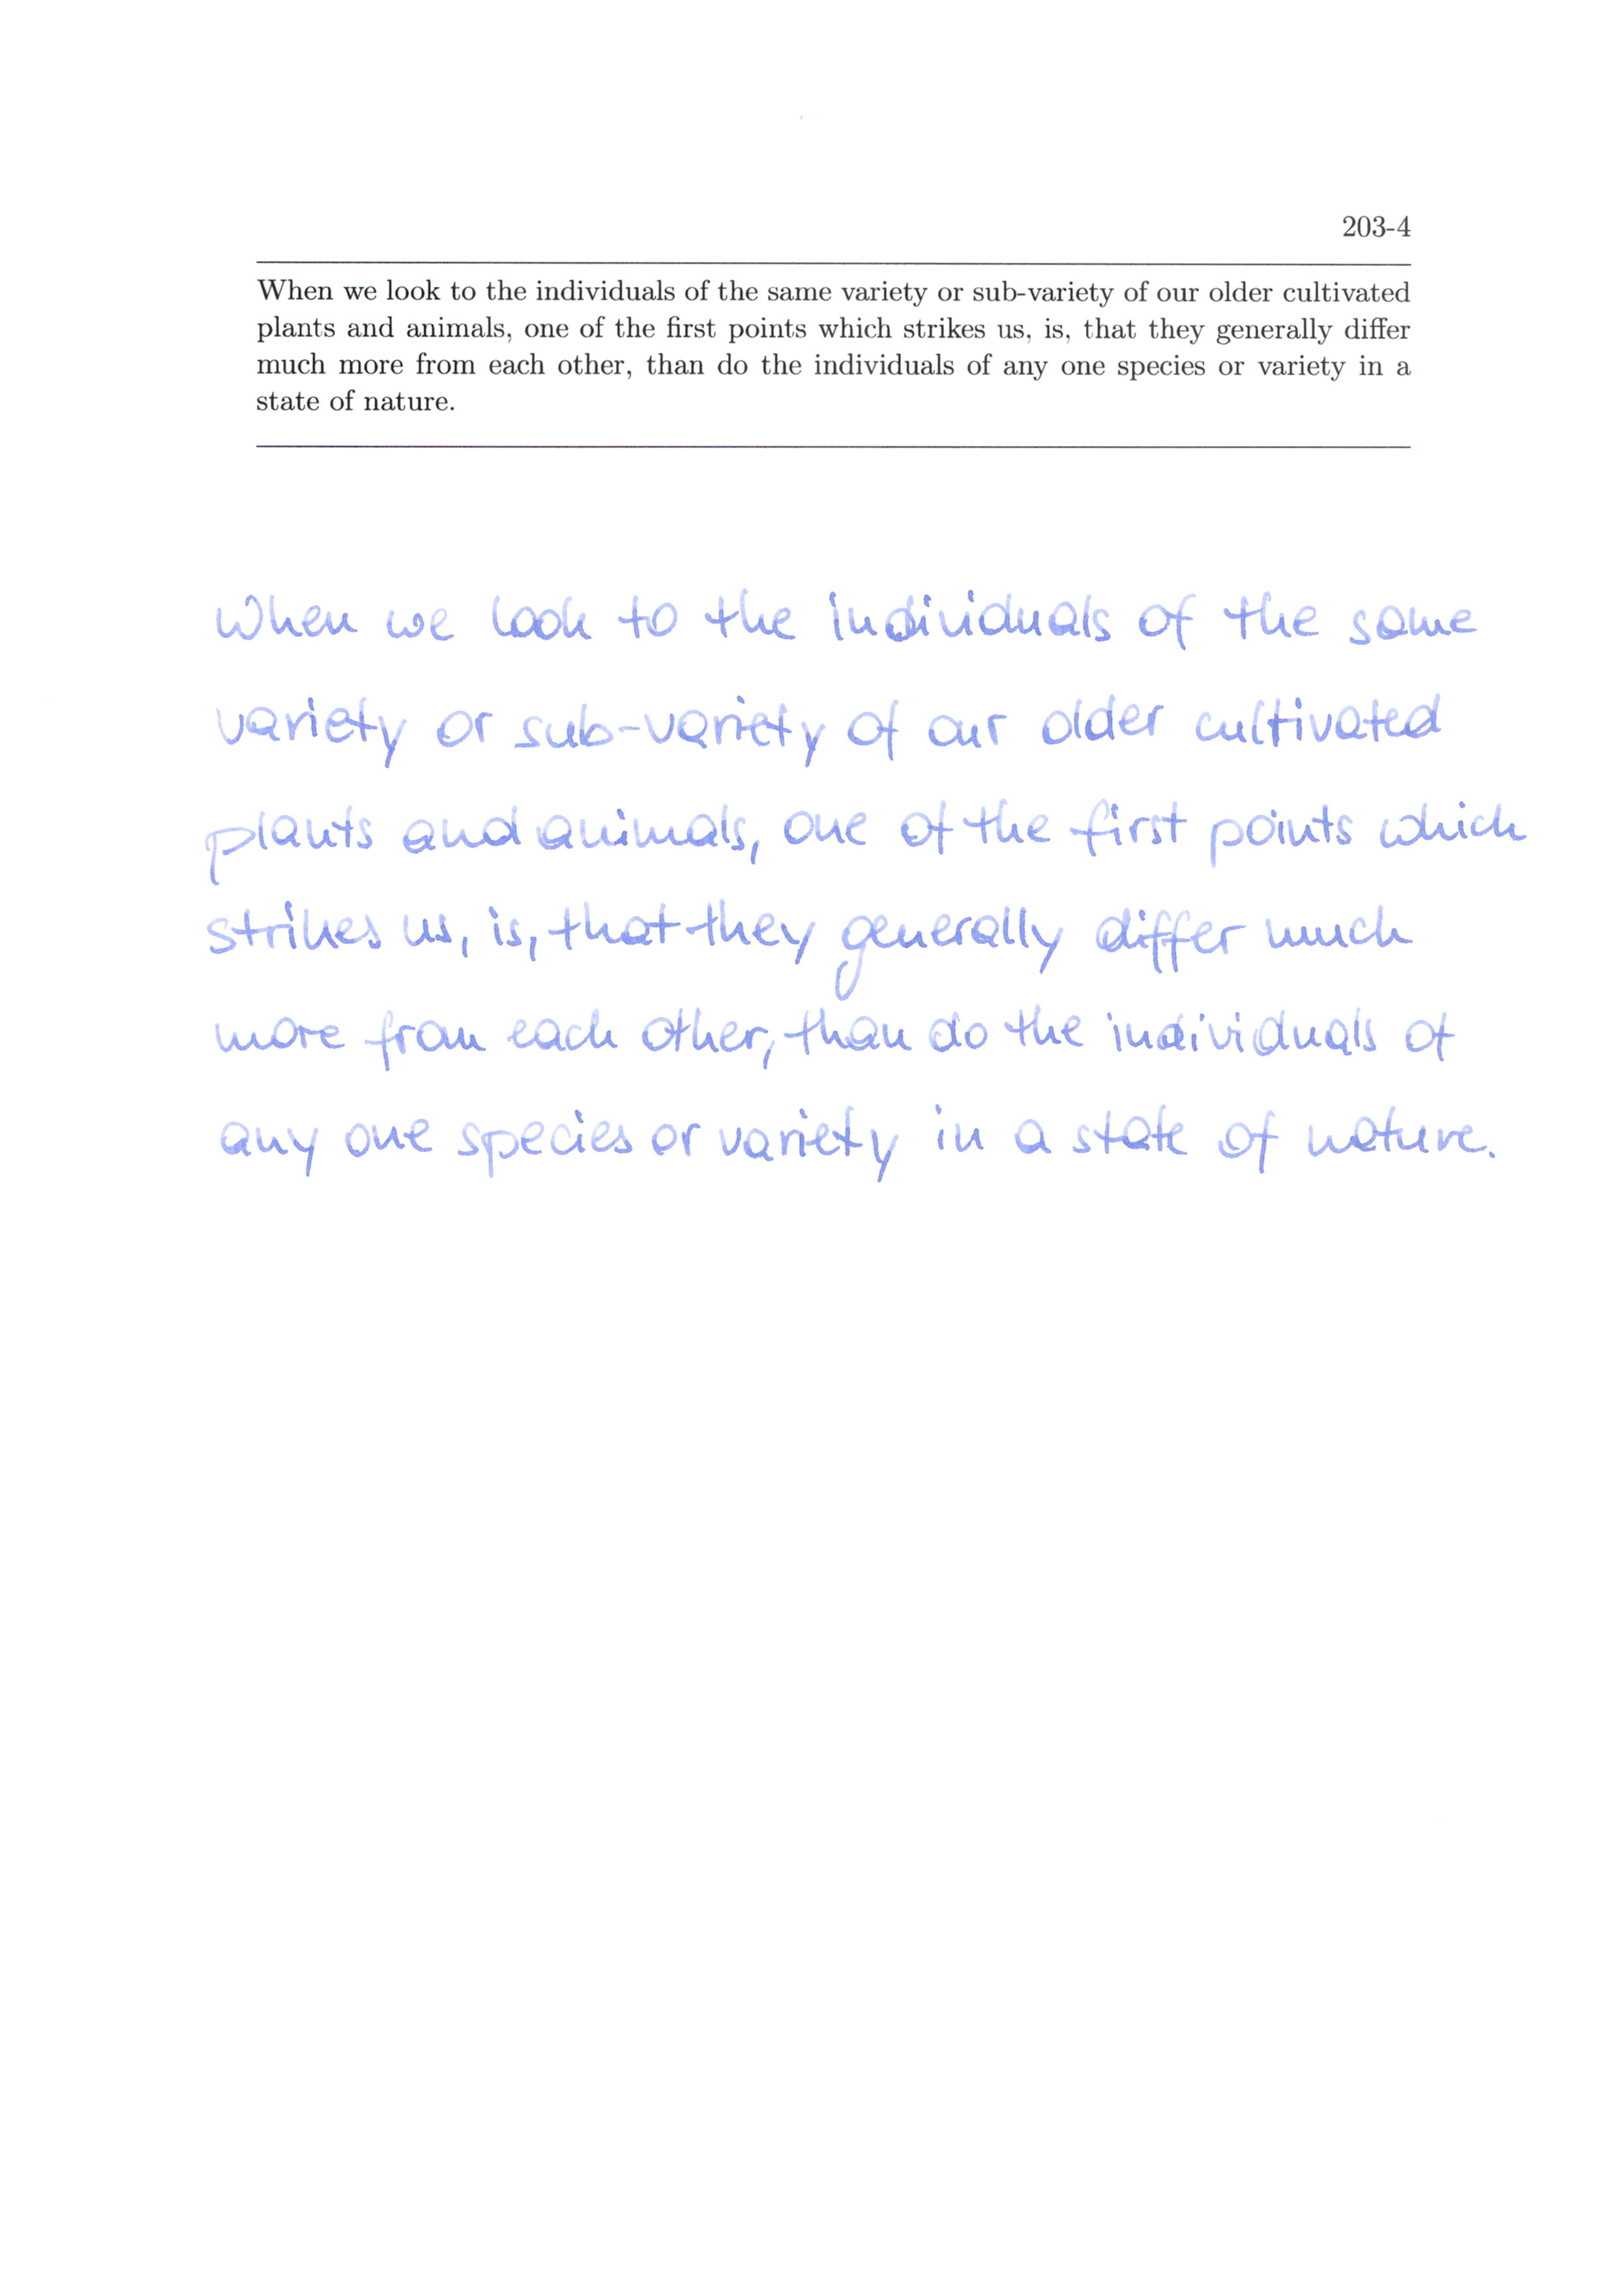 203-4
When we look to the individuals of the same variety or sub-variety of our older cultivated
plants and animals, one of the first points which strikes us, is, that they generally differ
much more from each other, than do the individuals of any one species or variety in a
state of nature.
When we look to the individuals of the same
variety or sub-variety of our older cultivated
plants and animals, one of the first points which
strikes us, is, that they generally differ much
more from each other, than do the individuals of
any one species or variety in a state of nature.